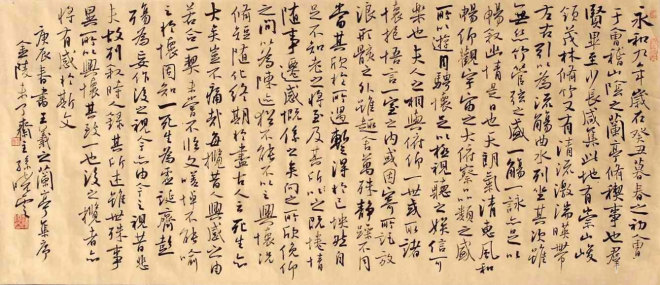 永和九年歲在癸丑暮春之初會
于會稽山陰之蘭亭脩稧事也群
賢畢至少長咸集此地有崇山峻
領茂林脩竹又有清流激湍暎帶
左右引以為流觴曲水列坐其次雖
無絲竹管弦之盛一觴一詠亦足以
暢敘幽情是日也天朗氣清惠風和
暢仰觀宇宙之大俯察品類之盛
所以遊目騁懷足以極視聽之娛信可
樂也夫人之相與俯仰一世或取諸
懷抱悟言一室之內或因寄所託放
浪形骸之外雖趣舍萬殊靜躁不同
當其欣於所遇蹔得於己快然自
足不知老之將至及其所之既惓情
隨事遷感慨係之矣向之所欣俛仰
之間以為陳迹猶不能不以之興懷況
脩短隨化終期於盡古人云死生亦
大矣豈不痛哉每攬昔人興感之由
若合一契未嘗不臨文嗟悼不能喻
之於懷固知一死生為虛誕齊彭
殤為妄作後之視今亦由今之視昔悲
夫故列敘時人錄其所述雖世殊事
異所以興懷其致一也後之攬者亦
將有感於斯文
庚辰春書王羲之蘭亭集序
金陵未了齋主孫曉雲